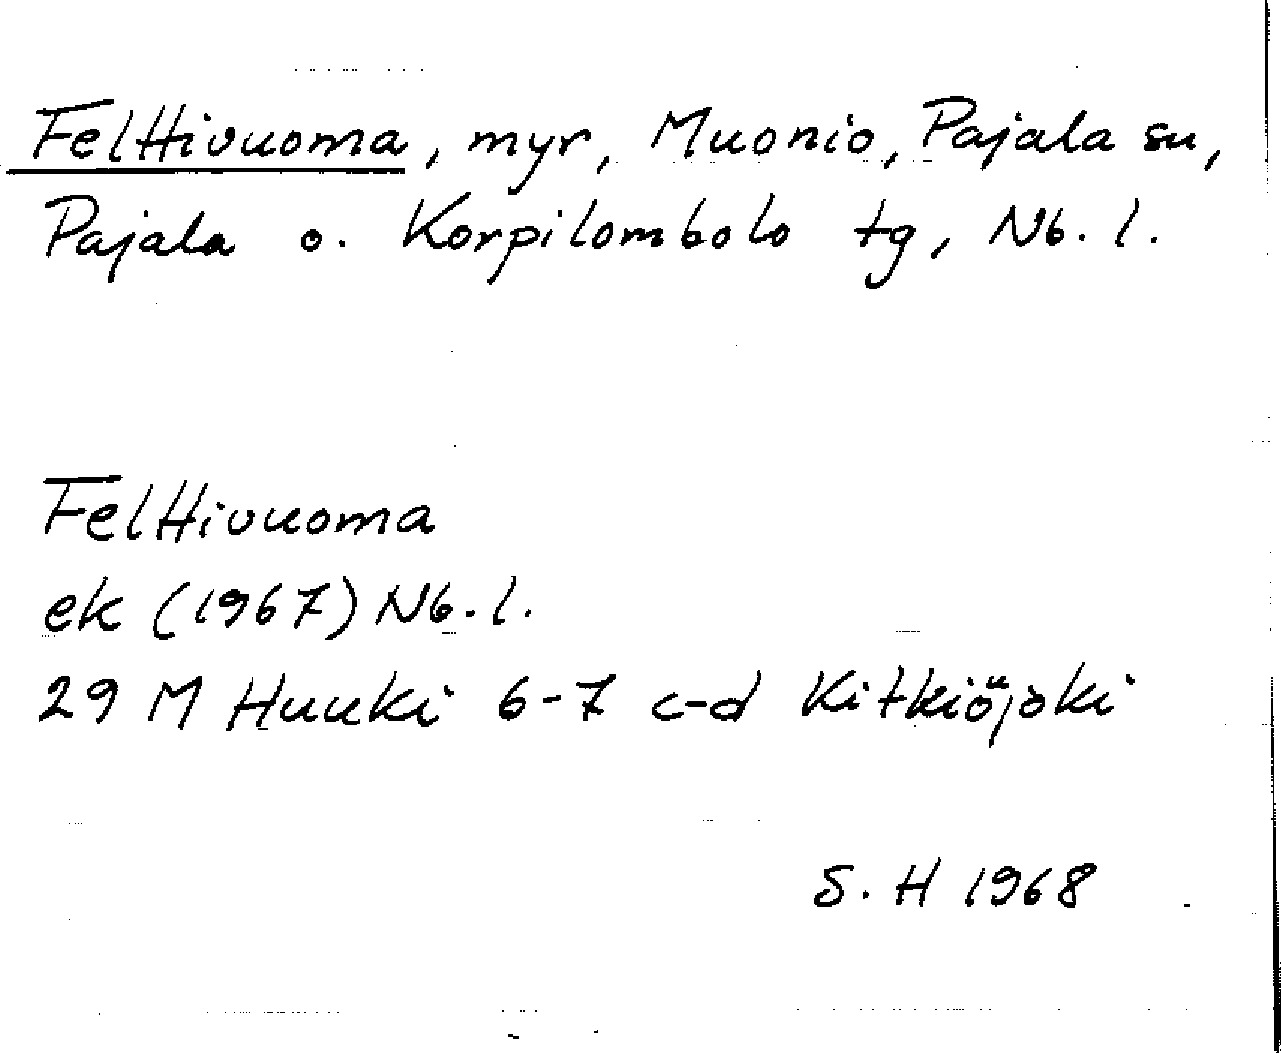 Felttivuoma, myr, Muonio, Pajala sn,
Pajala o. Korpilombolo tg, Nb. l.
Felttivuoma
ek (1967) Nb. l.
29 M Huuki 6-7 c-d Kitkiöjoki
S. H 1968